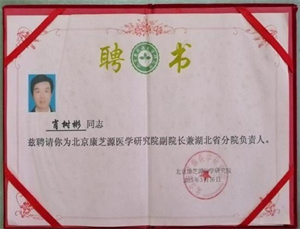 聘书
肖树彬 同志
兹聘请你为北京康芝源医学研究院副院长兼湖北省分院负责人。
北京康芝源医学研究院